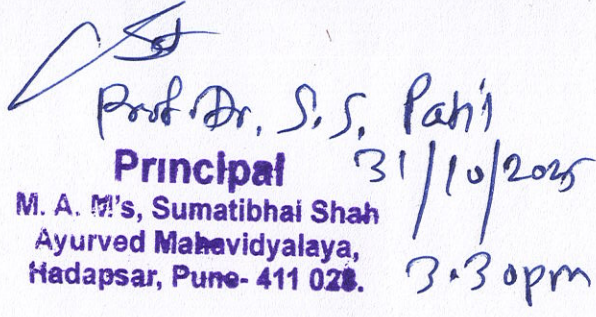 Prof. Dr. S. S. Patil
Principal 31/10/2025
M. A. M's, Sumatibhai Shah
Ayurved Mahavidyalaya,
Hadapsar, Pune- 411 028. 3.30pm